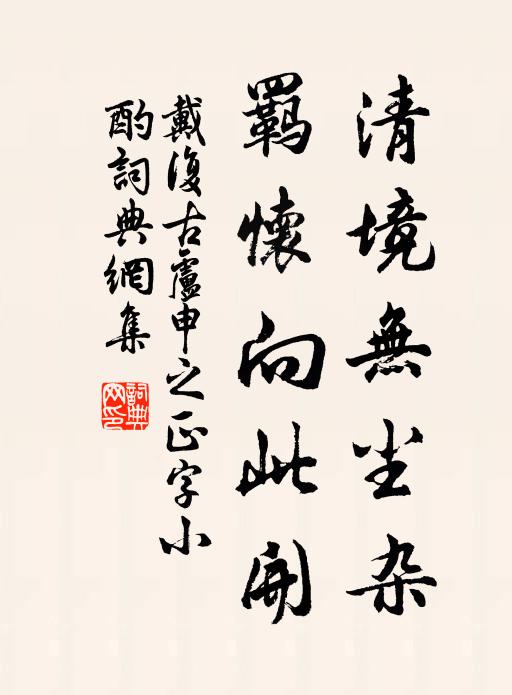 清境無尘杂
羈懷向此開
戴復古盧申之正字小
酌詞典網集
詞典网印